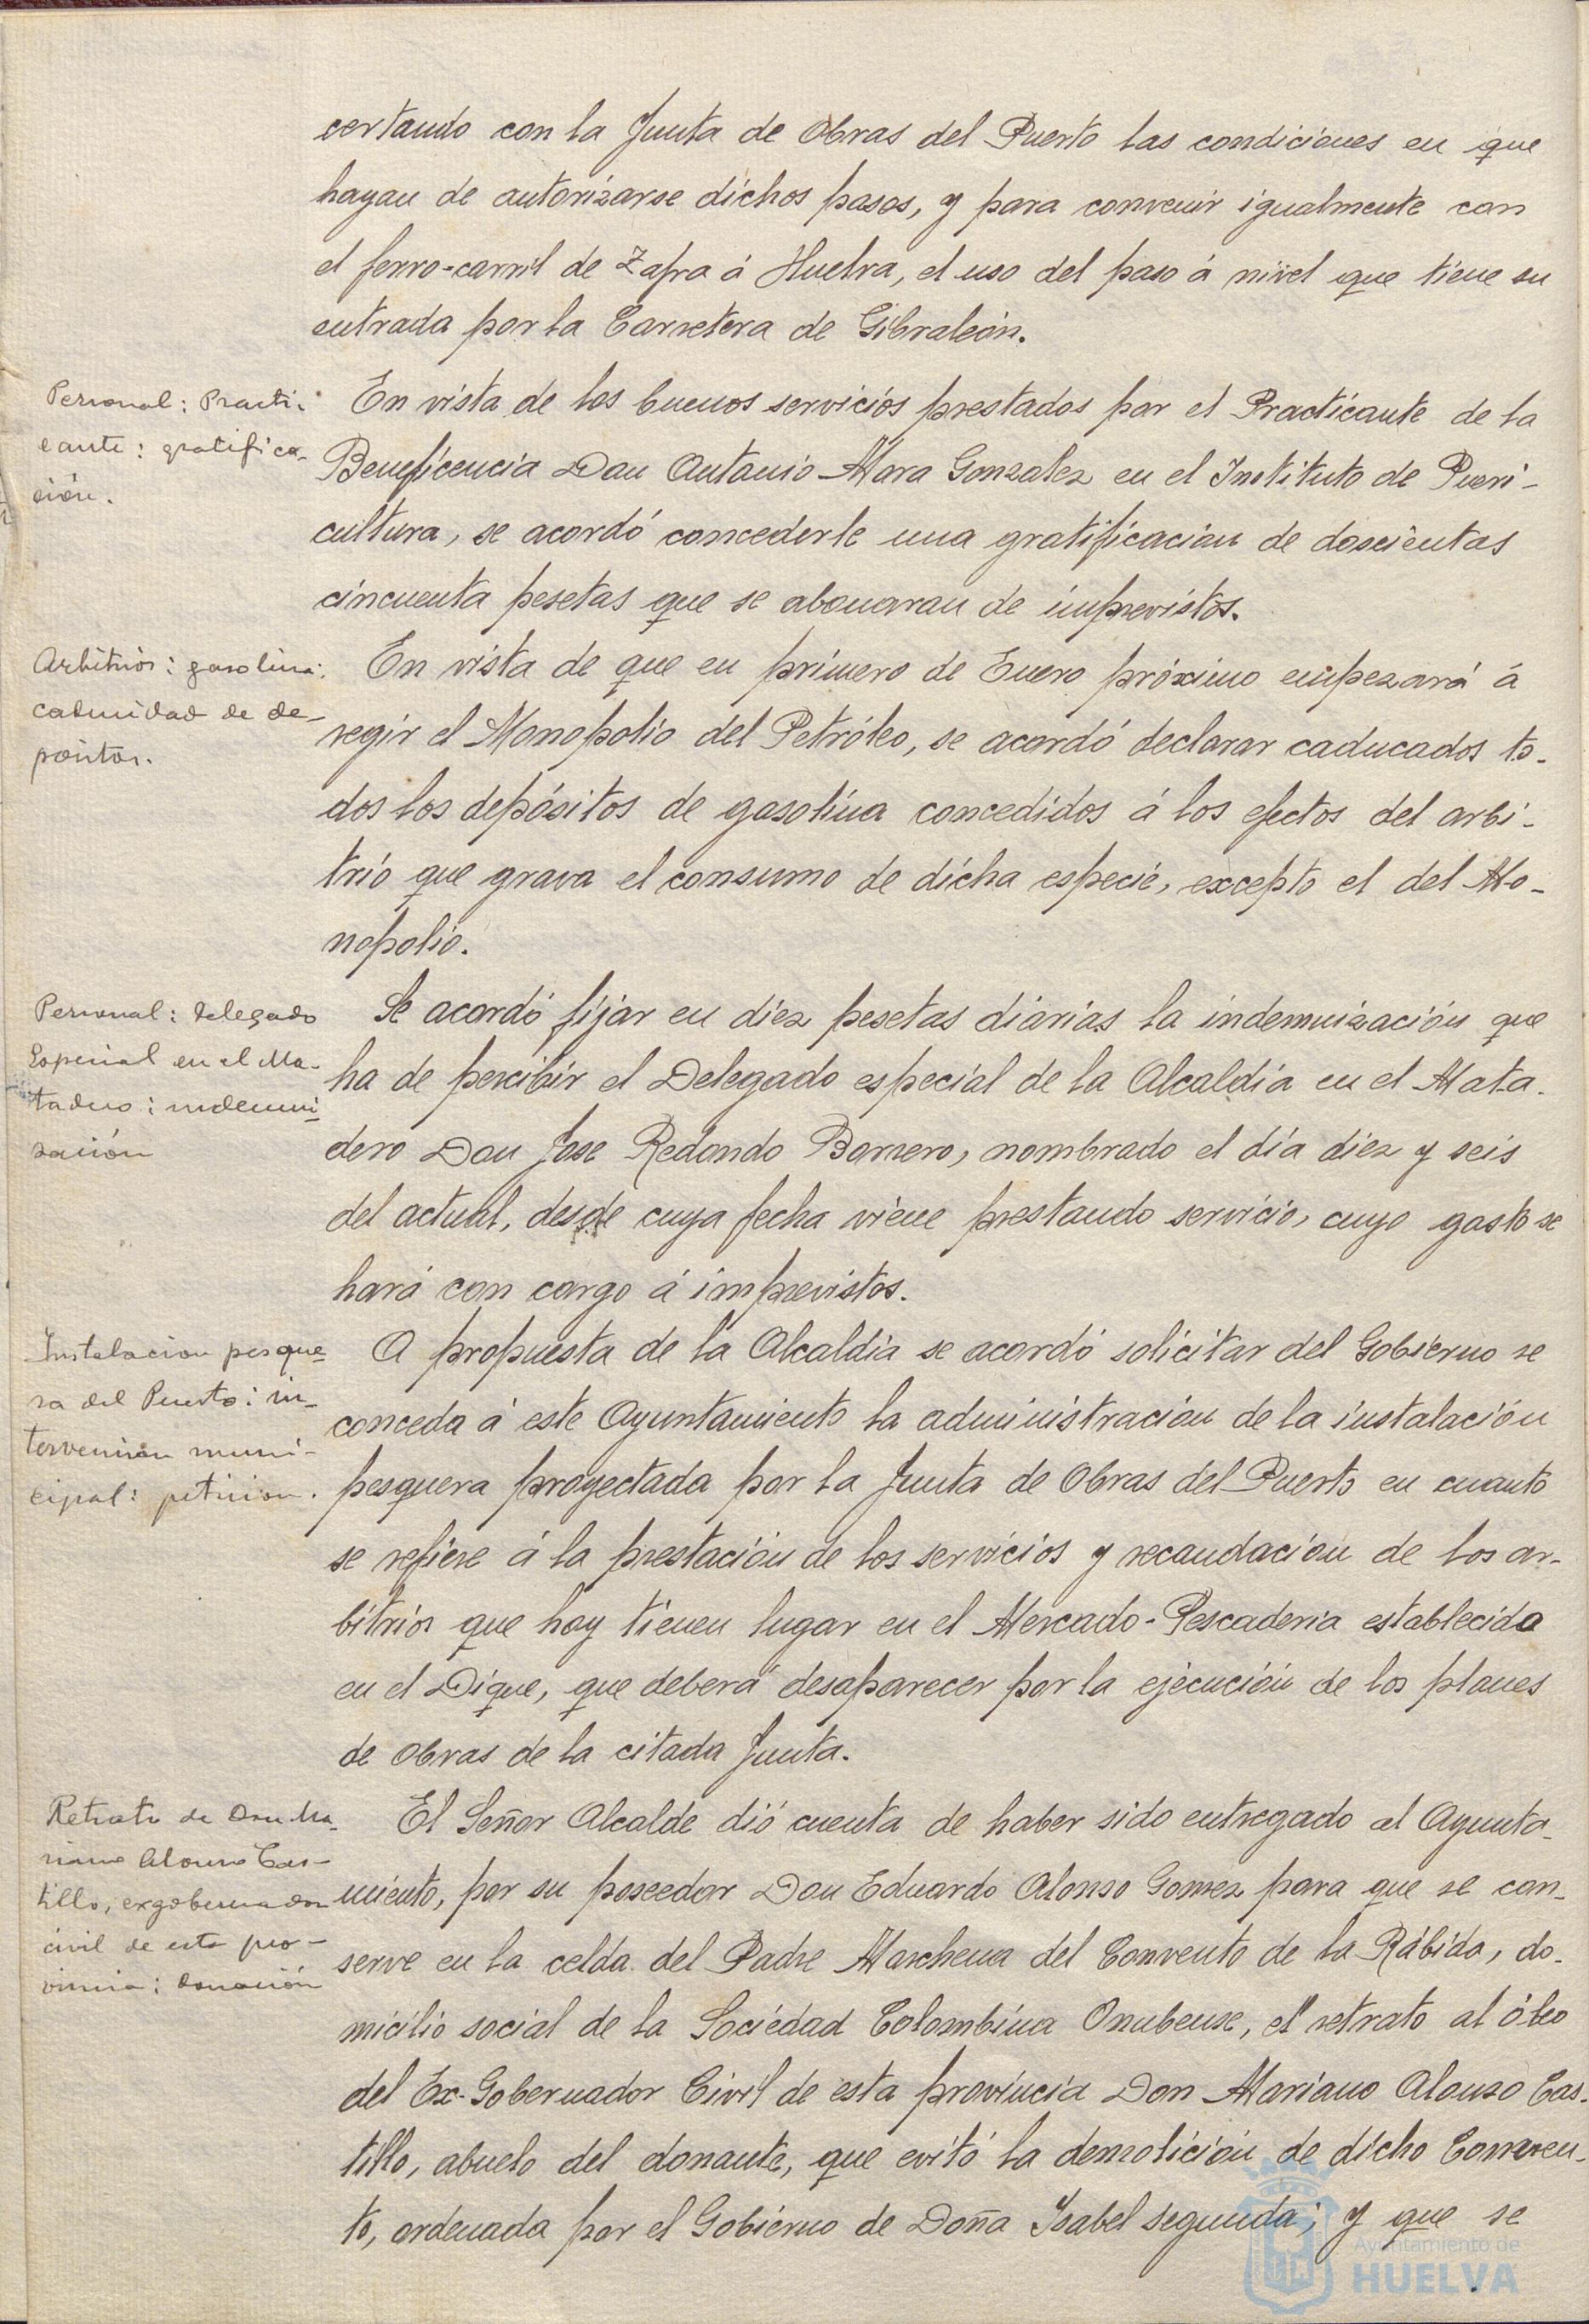 certando con la Junta de Obras del Puerto las condiciones en que
hayan de autorizarse dichos pasos, y para convenir igualmente con
el ferro-carril de Zafra á Huelva, el uso del paso á nivel que tiene su
entrada por la Carretera de Gibraleón.
Personal: Practi-
cante: gratifica-
ción.
En vista de los buenos servicios prestados por el Practicante de la
Beneficencia Don Antonio Mora Gonzalez en el Instituto de Pueri-
cultura, se acordó concederle una gratificación de doscientas
cincuenta pesetas que se abonaran de imprevistos.
Arbitrios: gasolina:
caducidad de de-
pósitos.
En vista de que en primero de Enero próximo empezará á
regir el Monopolio del Petróleo, se acordó declarar caducados to-
dos los depósitos de gasolina concedidos á los efectos del arbi-
trio que grava el consumo de dicha especie, excepto el del Mo-
nopolio.
Personal: Delegado
Especial en el Ma-
tadero: indemni-
zación
Se acordó fijar en diez pesetas diarias la indemnización que
ha de percibir el Delegado especial de la Alcaldía en el Mata-
dero Don Jose Redondo Borrero, nombrado el día diez y seis
del actual, desde cuya fecha viene prestando servicio, cuyo gasto se
hará con cargo á imprevistos.
Instalacion pesque-
ra del Puerto: in-
tervencion muni-
cipal: peticion.
A propuesta de la Alcaldía se acordó solicitar del Gobierno se
conceda á este Ayuntamiento la administración de la instalación
pesquera proyectada por la Junta de Obras del Puerto en cuanto
se refiere á la prestación de los servicios y recaudación de los ar-
bitrios que hoy tienen lugar en el Mercado-Pescaderia establecido
en el Dique, que deberá desaparecer por la ejecución de los planes
de obras de la citada Junta.
Retrato de Don Ma-
riano Alonso Cas-
tillo, exgobernador
civil de esta pro-
vincia: donación
El Señor Alcalde dió cuenta de haber sido entregado al Ayunta-
miento, por su poseedor Don Eduardo Alonso Gomez para que se con-
serve en la celda del Padre Marchena del Convento de la Rábida, do-
micilio social de la Sociedad Colombina Onubense, el retrato al óleo
del Ex-Gobernador Civil de esta provincia Don Mariano Alonso Cas-
tillo, abuelo del donante, que evitó la demolición de dicho Conven-
to, ordenada por el Gobierno de Doña Isabel segunda; y que se
Ayuntamiento de
HUELVA